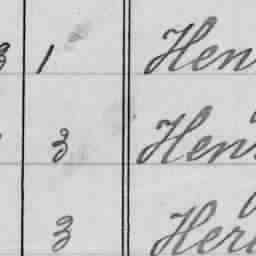 1 Hen
3 Hen
3 Her